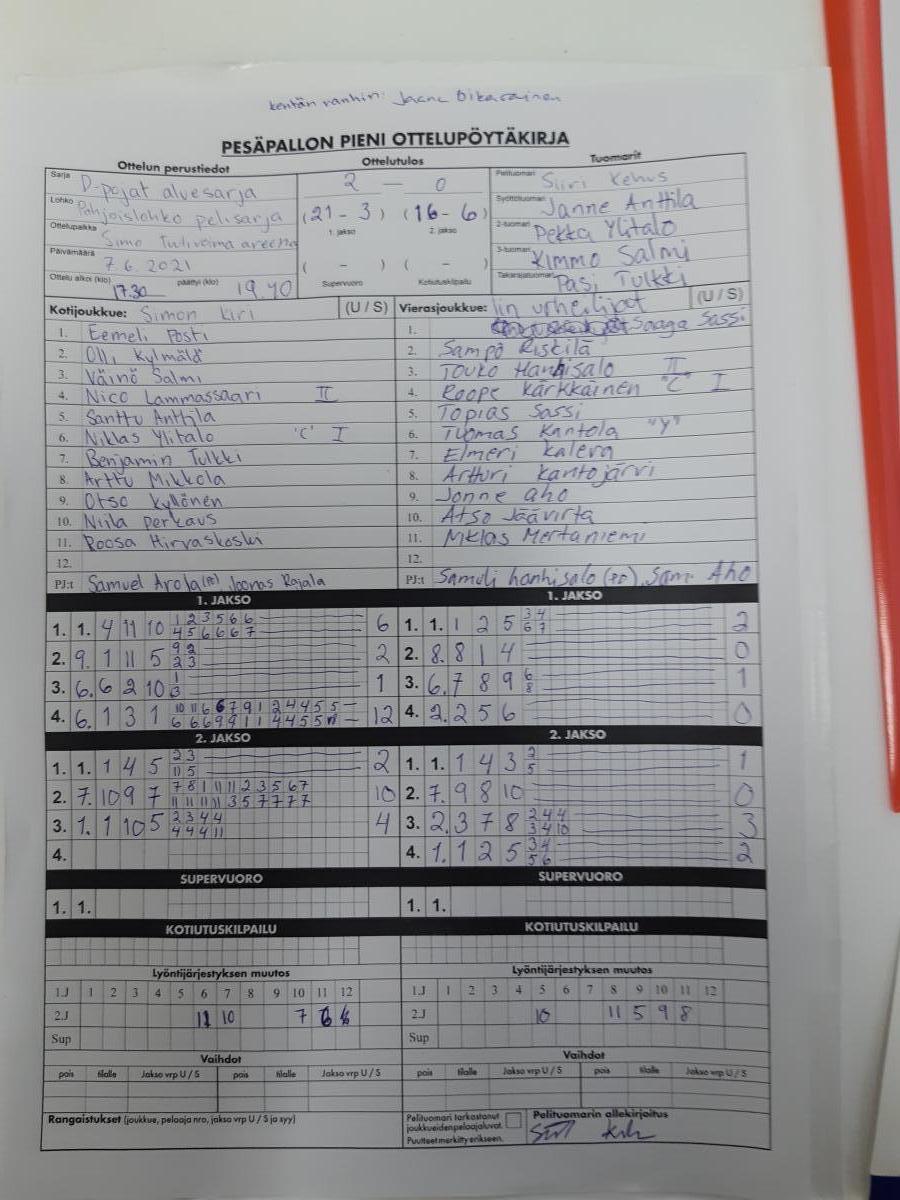 kentän vanhin: Jaana Oikarainen
PESÄPALLON PIENI OTTELUPÖYTÄKIRJA
Ottelun perustiedot
Sarja D-pojat aluesarja
Lohko Pohjoislohko pelisarja
Ottelupaikka Simo Tuulivoima areena
Päivämäärä 7.6.2021
Ottelu alkoi (klo) 17.30 päättyi (klo) 19.40
Ottelutulos
2 — 0
(21 - 3) (16 - 6)
1. jakso 2. jakso
( - ) ( - )
Supervuoro Kotiutuskilpailu
Tuomarit
Pelituomari Siiri Kehus
Syöttötuomari Janne Anttila
2-tuomari Pekka Ylitalo
3-tuomari Kimmo Salmi
Takarajatuomari Pasi Tulkki
Kotijoukkue: Simon Kiri (U / S)
1. Eemeli Posti
2. Olli Kylmälä
3. Väinö Salmi
4. Nico Lammassaari II
5. Santtu Anttila
6. Niklas Ylitalo "C" I
7. Benjamin Tulkki
8. Arttu Mikkola
9. Otso Kyllönen
10. Niila Perkaus
11. Roosa Hirvaskoski
12.
PJ:t Samuel Arola (PP), Joonas Rajala
Vierasjoukkue: Iin urheilijat (U / S)
1. Saaga Sassi
2. Sampo Riskilä
3. Touko Hanhisalo II
4. Roope Kärkkäinen "C" I
5. Topias Sassi
6. Tuomas Kantola "Y"
7. Elmeri Kaleva
8. Artturi Kantojärvi
9. Jonne Aho
10. Atso Jäävirta
11. Niklas Mertaniemi
12.
PJ:t Samuli Hanhisalo (PP), Sami Aho
1. JAKSO
1. 1. 4 11 10 1 2 3 5 6 6 6
4 5 6 6 6 7
2. 9. 1 11 5 9 2 2
2 3
3. 6. 6 2 10 1 1
3
4. 6. 1 3 1 10 11 6 6 7 9 1 2 4 4 5 5 12
6 6 6 9 9 1 1 4 4 5 5 11
1. JAKSO
1. 1. 1 2 5 3 4 2
6 7
2. 8. 8 1 4 0
3. 6. 7 8 9 6 1
8
4. 2. 2 5 6 0
2. JAKSO
1. 1. 1 4 5 2 3 2
11 5
2. 7. 10 9 7 7 8 1 11 11 2 3 5 6 7 10
11 11 11 11 3 5 7 7 7 7
3. 1. 1 10 5 2 3 4 4 4
4 4 4 11
4.
2. JAKSO
1. 1. 1 4 3 2 1
5
2. 7. 9 8 10 0
3. 2. 3 7 8 2 4 4 3
3 4 10
4. 1. 1 2 5 3 4 2
5 6
SUPERVUORO
1. 1.
SUPERVUORO
1. 1.
KOTIUTUSKILPAILU
KOTIUTUSKILPAILU
Lyöntijärjestyksen muutos
1.J 1 2 3 4 5 6 7 8 9 10 11 12
2.J 11 10 7 6
Sup
Lyöntijärjestyksen muutos
1.J 1 2 3 4 5 6 7 8 9 10 11 12
2.J 10 11 5 9 8
Sup
Vaihdot
pois tilalle Jakso vrp U / S pois tilalle Jakso vrp U / S
Vaihdot
pois tilalle Jakso vrp U / S pois tilalle Jakso vrp U / S
Rangaistukset (joukkue, pelaaja nro, jakso vrp U / S ja syy)
Pelituomari tarkastanut
joukkueiden pelaajaluvat.
Puutteet merkitty erikseen.
Pelituomarin allekirjoitus